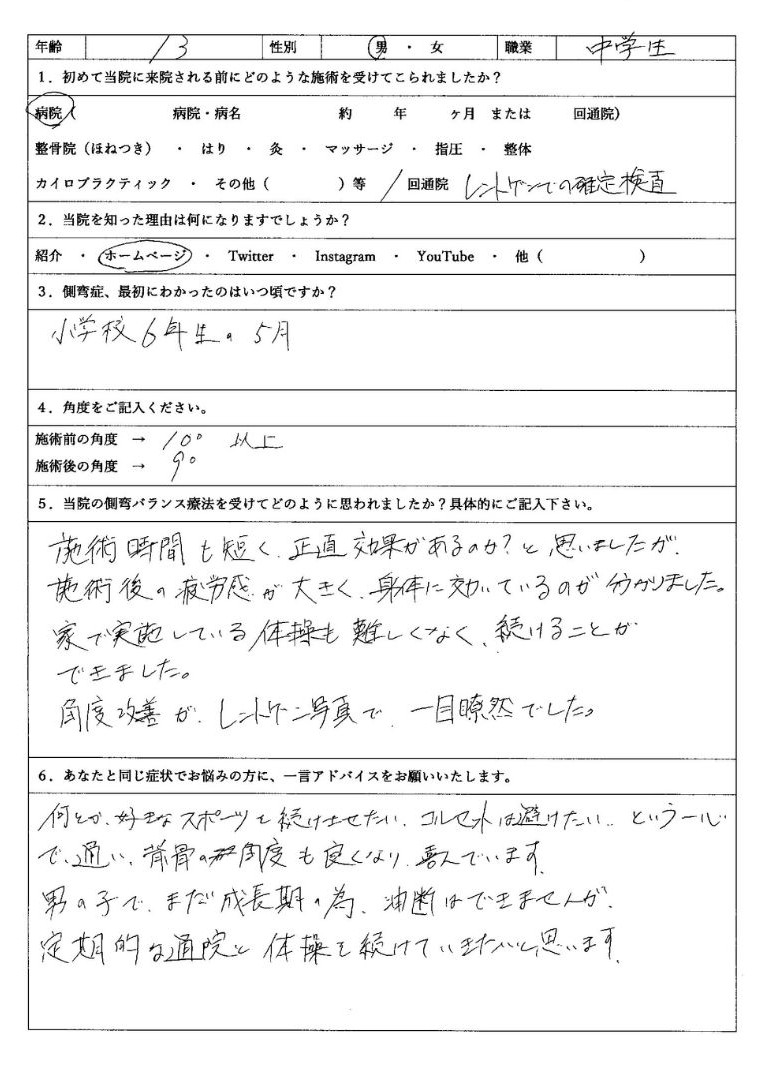 年齢 13 性別 男 ・ 女 職業 中学生
1．初めて当院に来院される前にどのような施術を受けてこられましたか？
病院（ 病院・病名 約 年 ヶ月 または 回通院）
整骨院（ほねつき） ・ はり ・ 灸 ・ マッサージ ・ 指圧 ・ 整体
カイロプラクティック ・ その他（ ）等 1 回通院 レントゲンでの確定検査
2．当院を知った理由は何になりますでしょうか？
紹介 ・ ホームページ ・ Twitter ・ Instagram ・ YouTube ・ 他（ ）
3．側弯症、最初にわかったのはいつ頃ですか？
小学校6年生の5月
4．角度をご記入ください。
施術前の角度 → 10° 以上
施術後の角度 → 9°
5．当院の側弯バランス療法を受けてどのように思われましたか？具体的にご記入下さい。
施術時間も短く、正直効果があるのか？と思いましたが、
施術後の疲労感が大きく、身体に効いているのが分かりました。
家で実施している体操も難しくなく、続けることが
できました。
角度改善が、レントゲン写真で、一目瞭然でした。
6．あなたと同じ症状でお悩みの方に、一言アドバイスをお願いいたします。
何とか、好きなスポーツを続けさせたい、コルセットは避けたい、という一心
で、通い、背骨の角度も良くなり、喜んでいます。
男の子で、まだ成長期の為、油断はできませんが、
定期的な通院と体操を続けていきたいと思います。